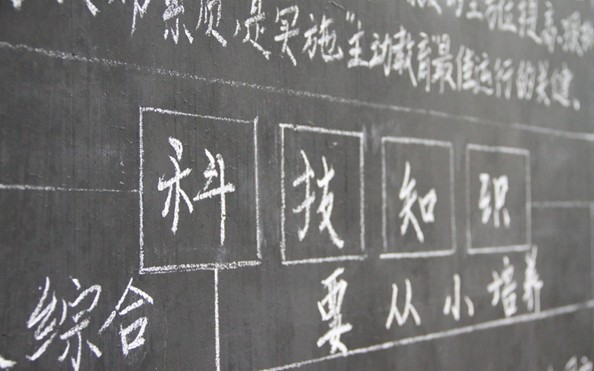 提高
素质,是实施“主动教育”最佳运行的关健、
科技知识
要从小培养
综合